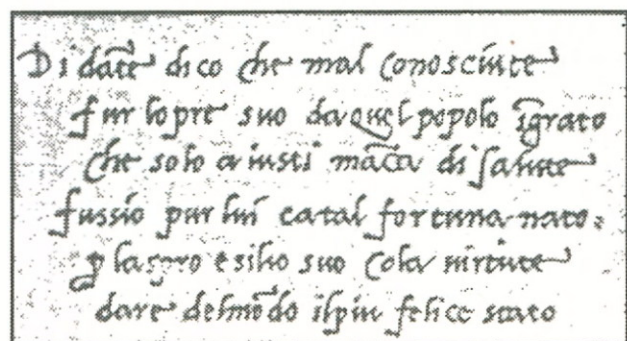 Di dāte dico che mal conosciute
fur lopre suo da quel popolo īgrato
che solo a iusti māca di salute
fussio pur lui catal fortuna nato.
ꝑ laspro esilio suo cola virtute
dare delmōdo ilpiu felice stato